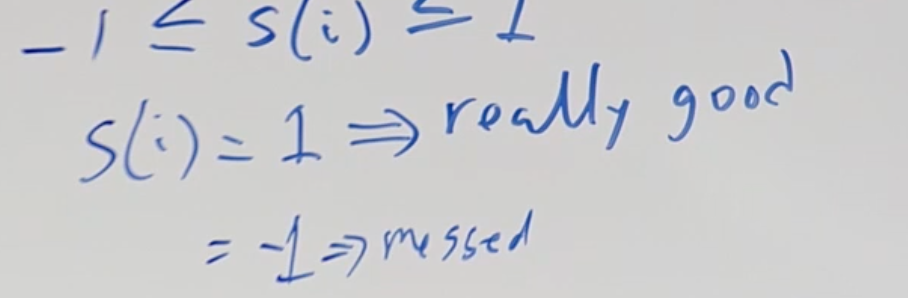 -1 ≤ s(i) ≤ 1
s(i) = 1 ⇒ really good
= -1 ⇒ messed